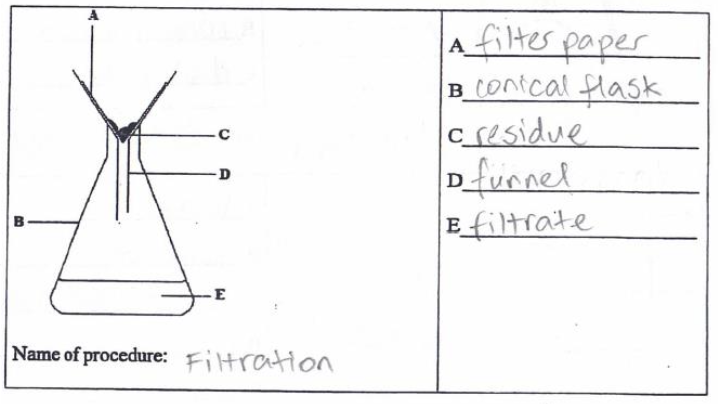 A
C
D
B
E
Name of procedure: Filtration
A filter paper
B conical flask
C residue
D funnel
E filtrate